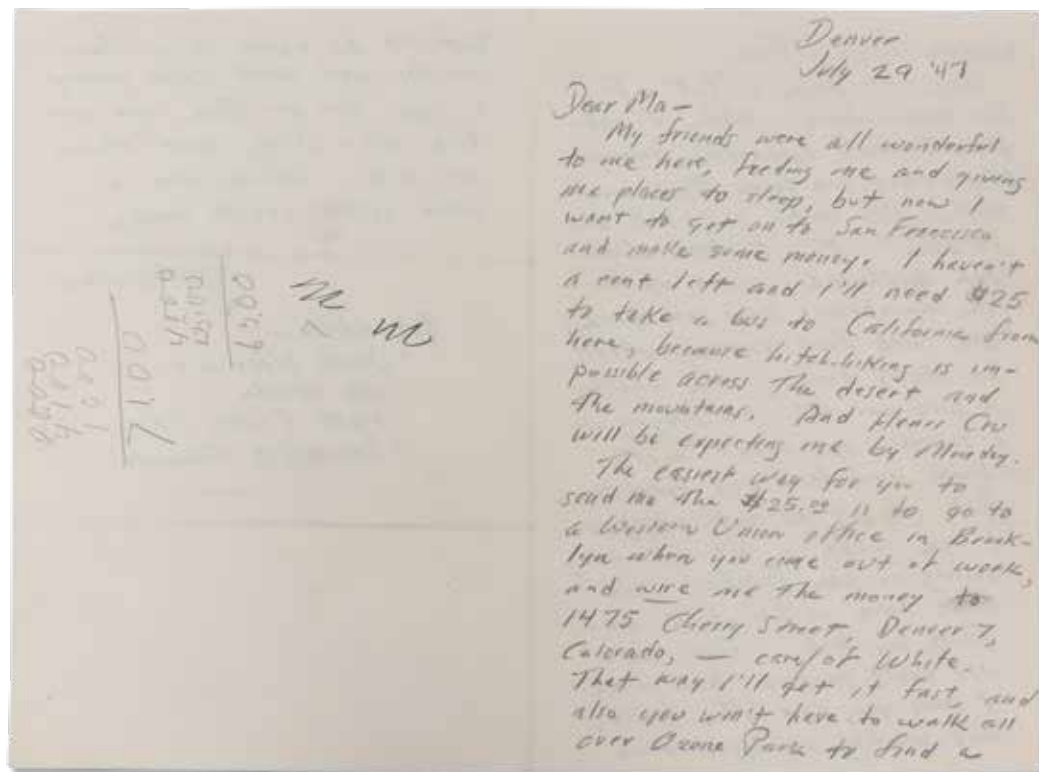 Denver
July 29 '47
Dear Ma—
My friends were all wonderful
to me here, feeding me and giving
me places to sleep, but now I
want to get on to San Francisco
and make some money. I haven't
a cent left and I'll need $25
to take a bus to California from
here, because hitch-hiking is im-
possible across the desert and
the mountains. And Henri Cru
will be expecting me by Monday.
The easiest way for you to
send me the $25.00 is to go to
a Western Union office in Brook-
lyn when you come out of work,
and wire me the money to
1475 Cherry Street, Denver 7,
Colorado, — care/of White.
That way I'll get it fast, and
also you won't have to walk all
over Ozone Park to find a
71.00
m
m